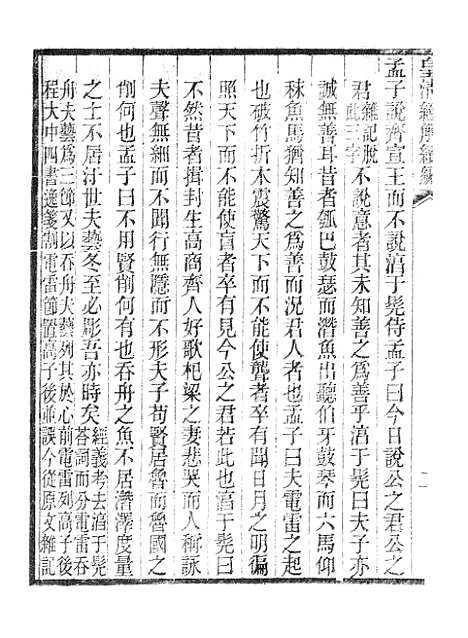 皇淸經解續編
孟子說齊宣王而不說淳于髡侍孟子曰今日說公之君公之
君雜記脫此三字不說意者其未知善之爲善乎淳于髡曰夫子亦
誠無善耳昔者瓠巴鼓瑟而潛魚出聽伯牙鼓琴而六馬仰
秣魚馬猶知善之爲善而況君人者也孟子曰夫電雷之起
也破竹折木震驚天下而不能使聾者卒有聞日月之明徧
照天下而不能使盲者卒有見今公之君若此也淳于髡曰
不然昔者揖封生高商齊人好歌杞梁之妻悲哭而人稱詠
夫聲無細而不聞行無隱而不形夫子苟賢居魯而魯國之
削何也孟子曰不用賢削何有也吞舟之魚不居潛澤度量
之士不居汙世夫蓺冬至必彫吾亦時矣經義考去淳于髡荅詞而分電雷吞
舟夫蓺爲三節又以吞舟夫蓺列其於心前電雷列高子後
程大中四書逸箋割電雷節置高子後並誤今從原文雜記